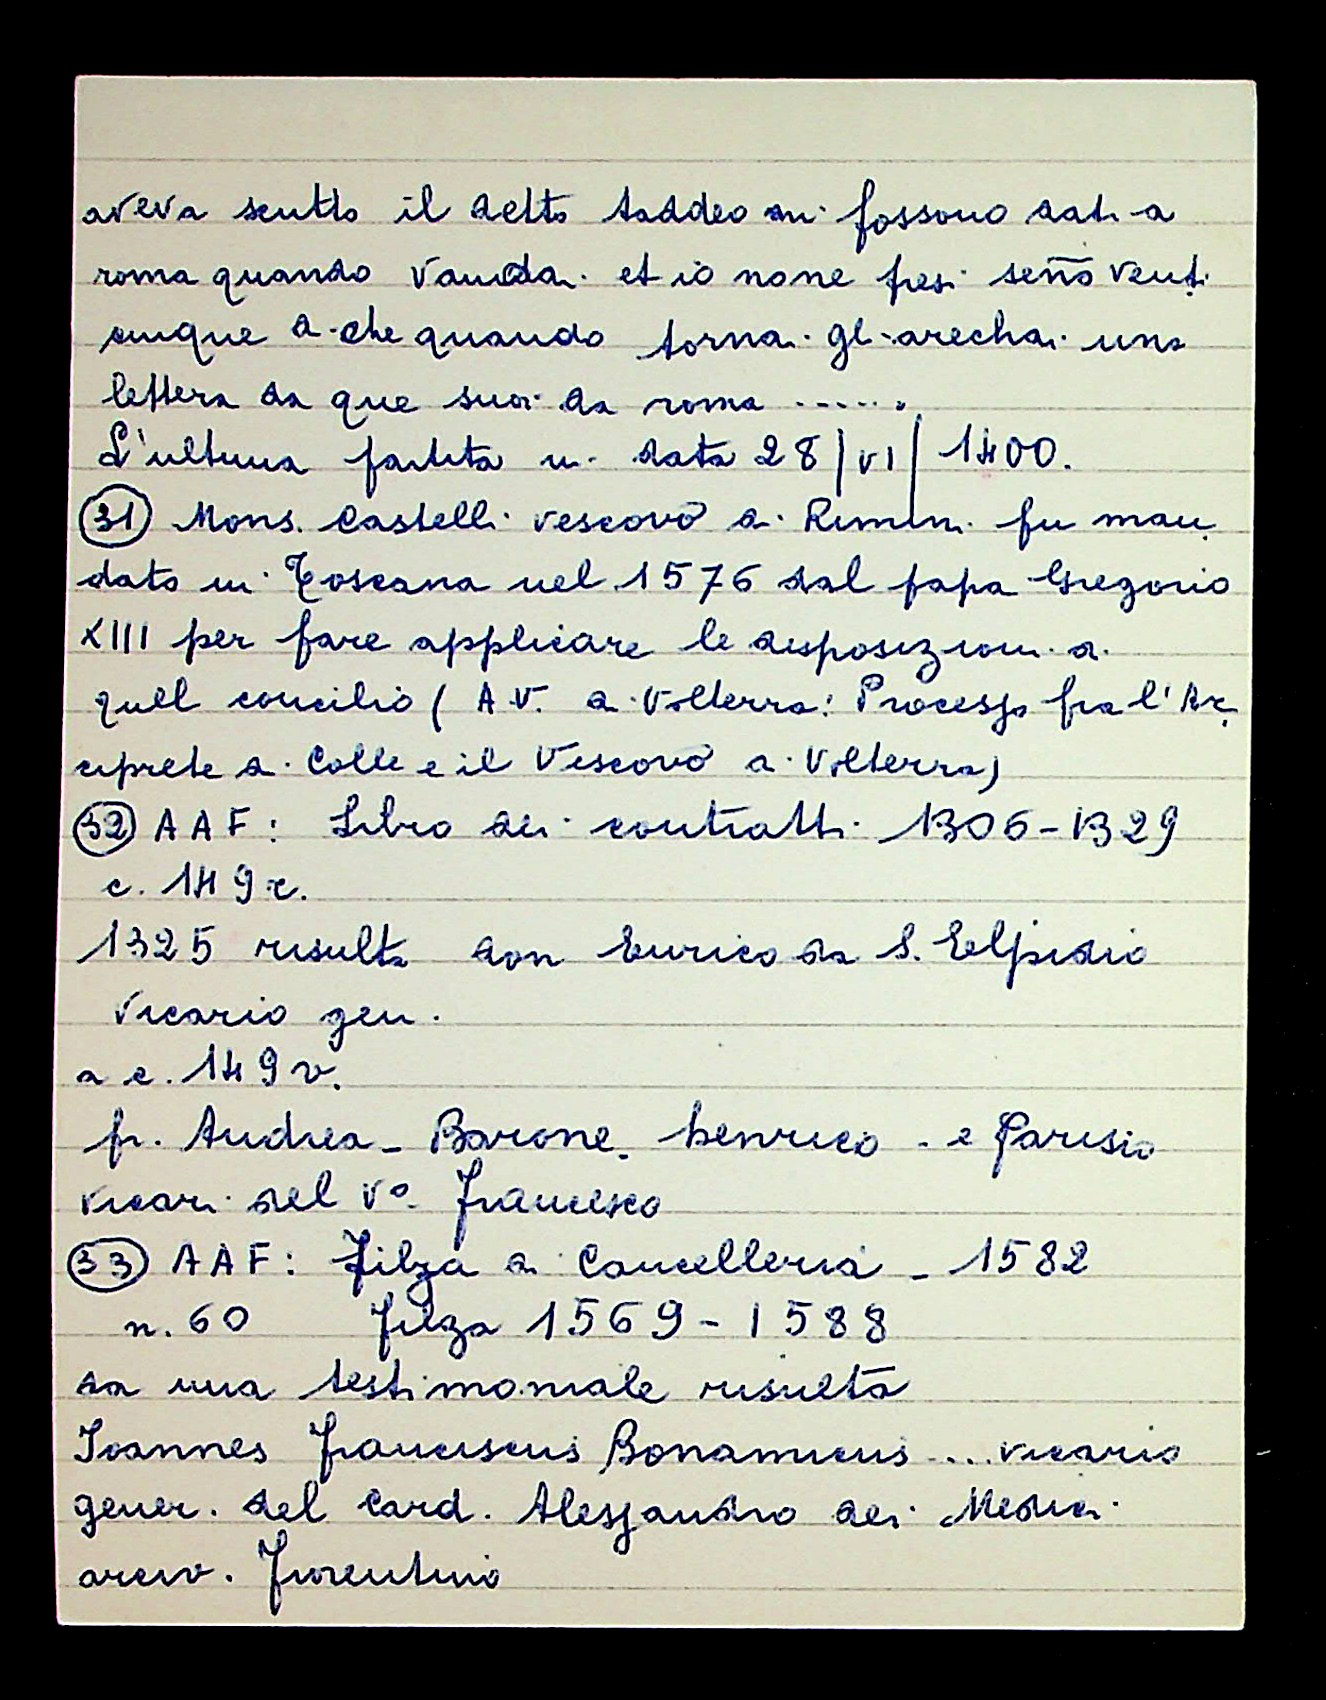 aveva scritto il detto taddeo mi fossono dati a
roma quando v'andai. et io none presi senō venti
cinque di che quando tornai gl arechai una
lettera da que suoi da roma ......
L'ultima partita in data 28/VI/1400.
(31) Mons. Castelli vescovo di Rimini fu man
dato in Toscana nel 1576 dal papa Gregorio
XIII per fare applicare le disposizioni di
quel concilio (A.V. di Volterra: Processo fra l'Ar
ciprete di Colle e il Vescovo di Volterra)
(32) AAF: Libro dei contratti 1306-1329
c. 149 r.
1325 risulta don Enrico da S. Elpidio
vicario gen.
a c. 149 v.
fr. Andrea - Barone - henrico - e Parisio
vicari del V° Francesco
(33) AAF: Filza di Cancelleria - 1582
n. 60 Filza 1569-1588
da una testimoniale risulta
Ioannes Franciscus Bonamicus .... vicario
gener. del Card. Alessandro dei Medici
arciv. Fiorentino